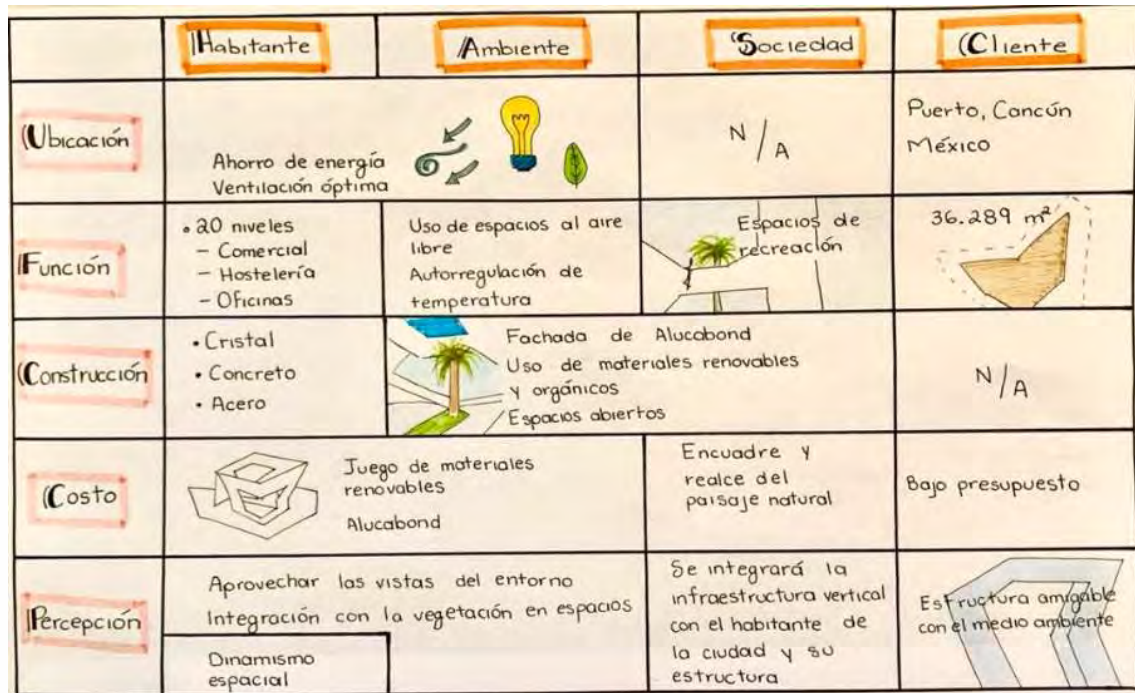 Habitante
Ambiente
Sociedad
Cliente
Ubicación
Ahorro de energía
Ventilación óptima
N/A
Puerto, Cancún
México
Función
• 20 niveles
- Comercial
- Hostelería
- Oficinas
Uso de espacios al aire
libre
Autorregulación de
temperatura
Espacios de
recreación
36.289 m²
Construcción
• Cristal
• Concreto
• Acero
Fachada de Alucabond
Uso de materiales renovables
y orgánicos
Espacios abiertos
N/A
Costo
Juego de materiales
renovables
Alucabond
Encuadre y
realce del
paisaje natural
Bajo presupuesto
Percepción
Aprovechar las vistas del entorno
Integración con la vegetación en espacios
Dinamismo
espacial
Se integrará la
infraestructura vertical
con el habitante de
la ciudad y su
estructura
Estructura amigable
con el medio ambiente